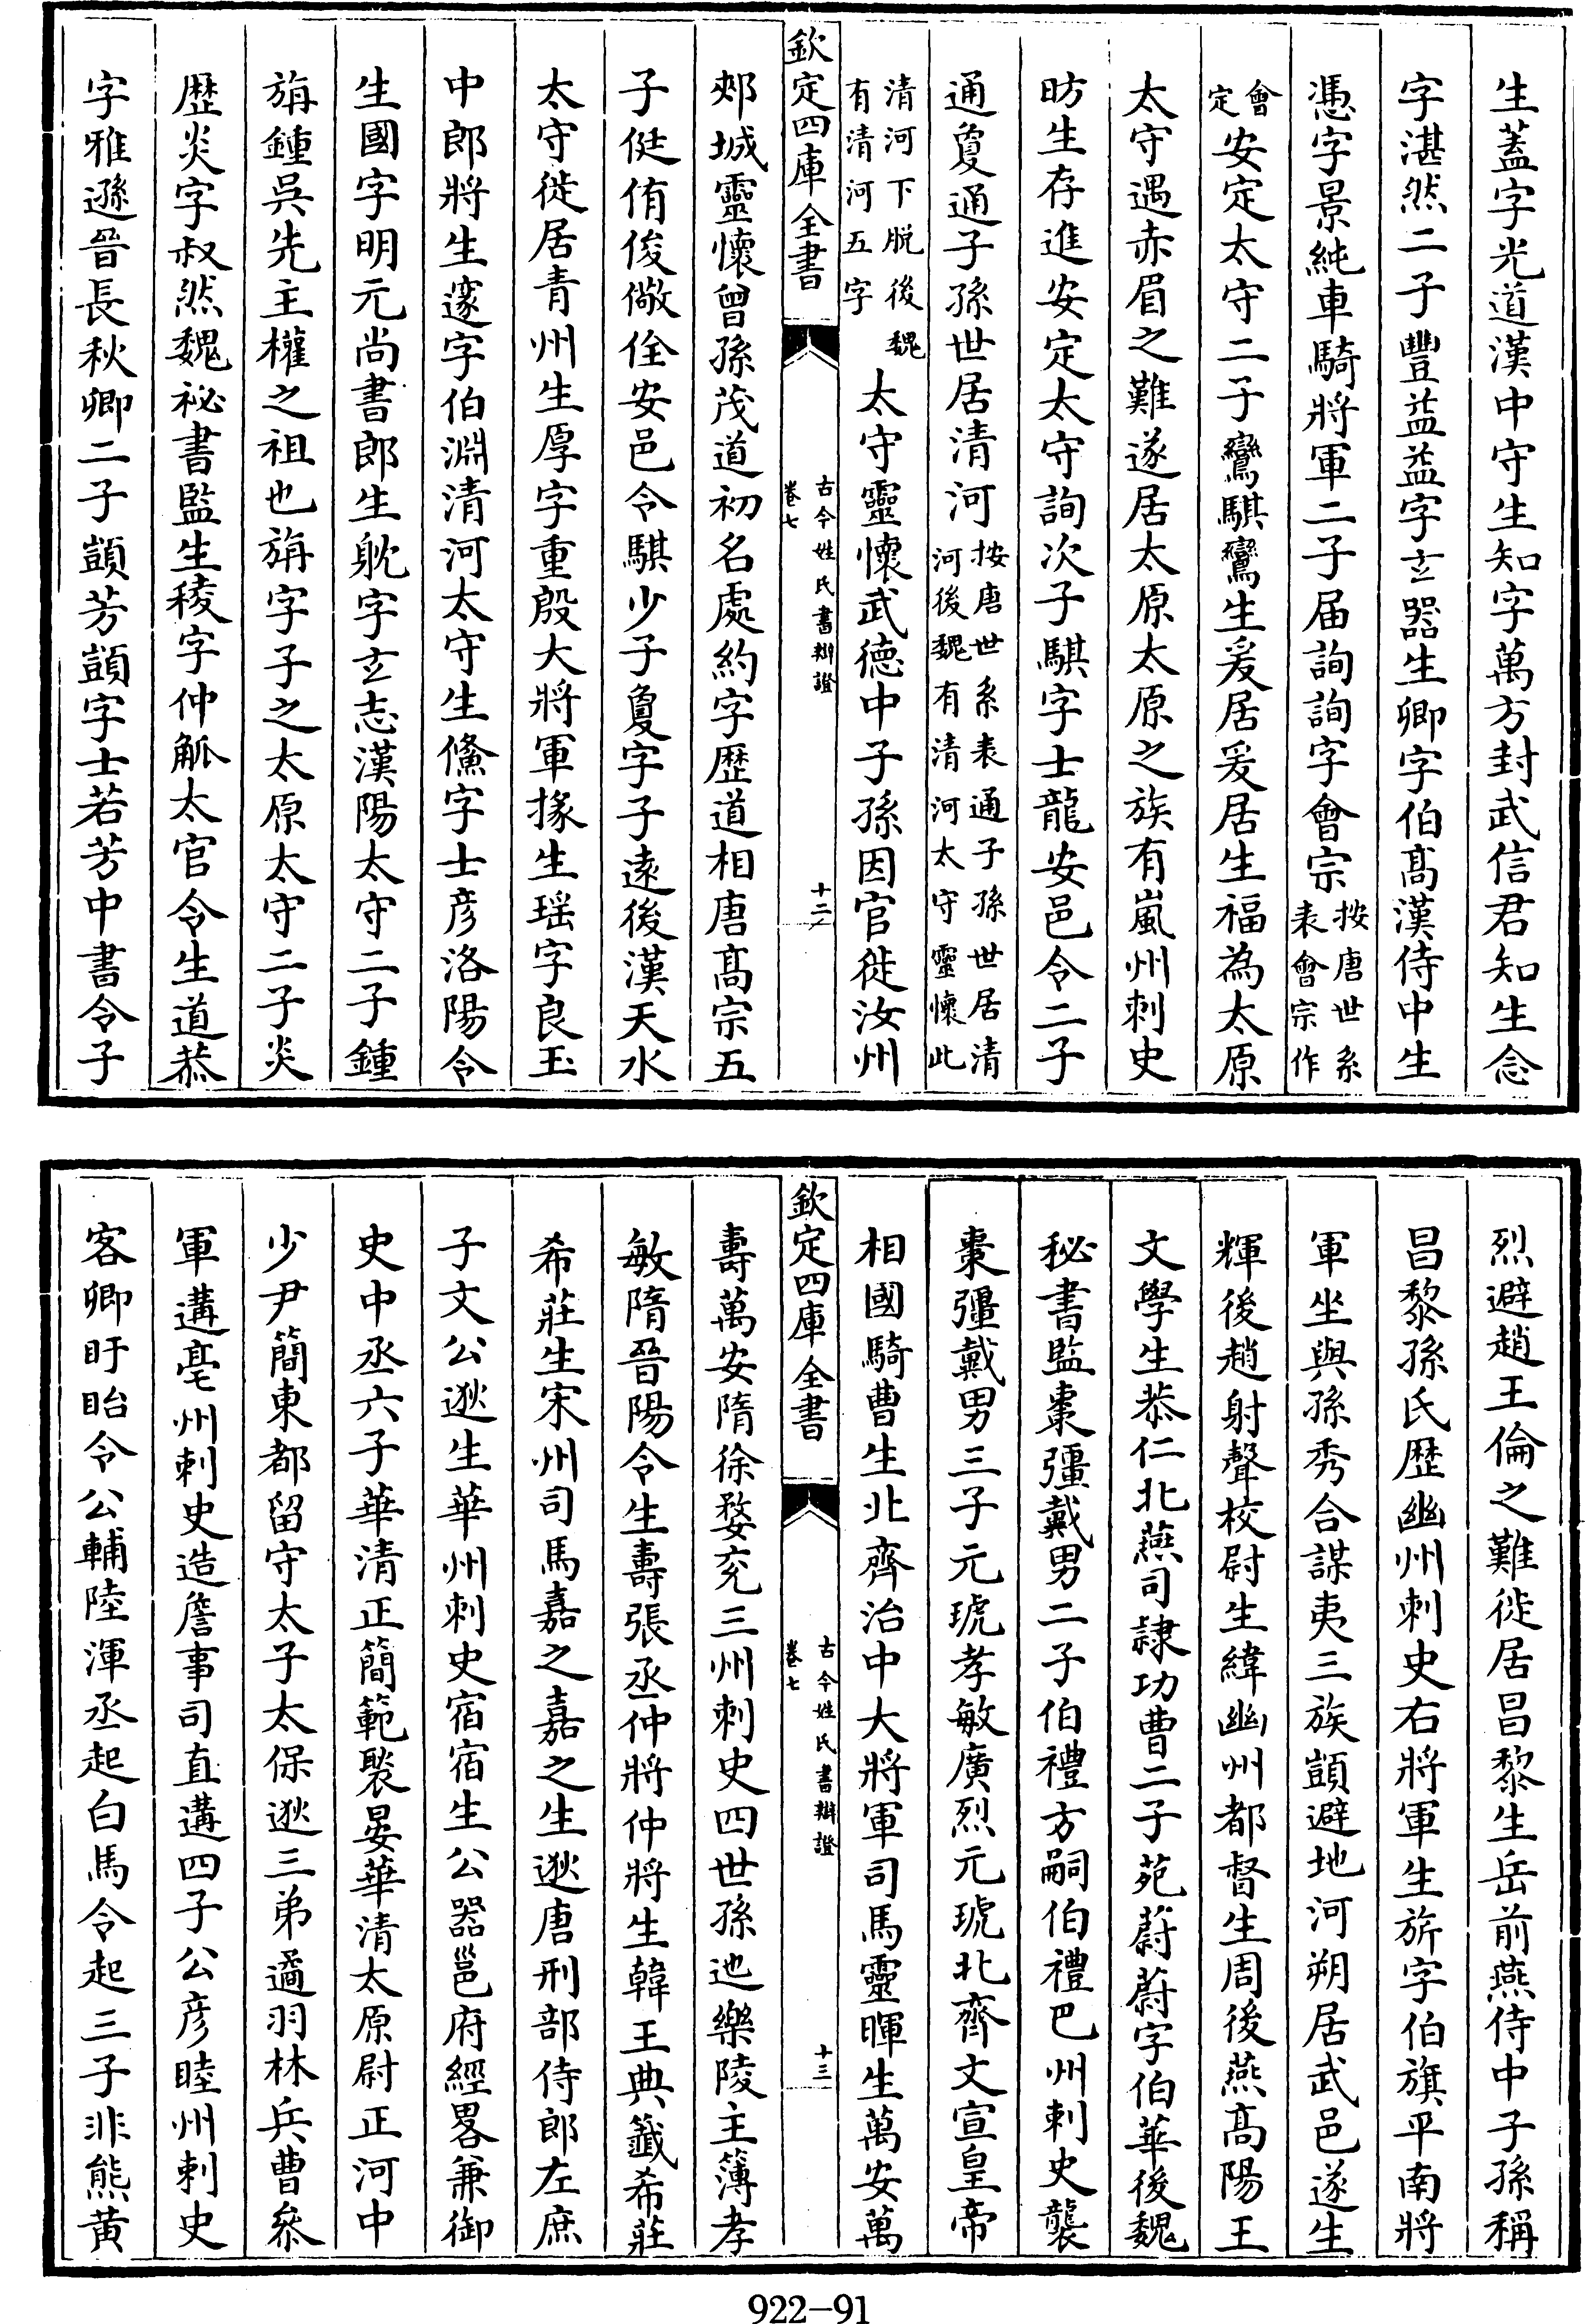 生蓋字光道漢中守生知字萬方封武信君知生念
字湛然二子豐益益字玄器生卿字伯髙漢侍中生
憑字景純車騎將軍二子届詢詢字會宗按唐世系表會宗作
會定安定太守二子鸞騏鸞生爰居爰居生福為太原
太守遇赤眉之難遂居太原太原之族有嵐州刺史
昉生存進安定太守詢次子騏字士龍安邑令二子
通敻通子孫世居清河按唐世系表通子孫世居清河後魏有清河太守靈懷此
清河下脱後魏有清河五字太守靈懷武徳中子孫因官徙汝州
欽定四庫全書
古今姓氏書辯證
卷七
十二
郟城靈懷曾孫茂道初名處約字歴道相唐髙宗五
子侹侑俊儆佺安邑令騏少子敻字子逺後漢天水
太守徙居青州生厚字重殷大將軍掾生瑶字良玉
中郎將生邃字伯淵清河太守生儵字士彦洛陽令
生國字明元尚書郎生躭字玄志漢陽太守二子鍾
旃鍾吳先主權之祖也旃字子之太原太守二子炎
歴炎字叔然魏祕書監生稜字仲觚太官令生道恭
字雅遜晉長秋卿二子顗芳顗字士若芳中書令子
烈避趙王倫之難徙居昌黎生岳前燕侍中子孫稱
昌黎孫氏歴幽州刺史右將軍生旂字伯旗平南將
軍坐與孫秀合謀夷三族顗避地河朔居武邑遂生
輝後趙射聲校尉生緯幽州都督生周後燕髙陽王
文學生恭仁北燕司隷功曹二子苑蔚蔚字伯華後魏
秘書監棗彊戴男二子伯禮方嗣伯禮巴州刺史襲
棗彊戴男三子元琥孝敏廣烈元琥北齊文宣皇帝
相國騎曹生北齊治中大將軍司馬靈暉生萬安萬
欽定四庫全書
古今姓氏書辯證
卷七
十三
壽萬安隋徐婺兖三州刺史四世孫迆樂陵主簿孝
敏隋晉陽令生壽張丞仲將仲將生韓王典籤希莊
希莊生宋州司馬嘉之嘉之生逖唐刑部侍郎左庶
子文公逖生華州刺史宿宿生公器邕府經畧兼御
史中丞六子華清正簡範褧晏華清太原尉正河中
少尹簡東都留守太子太保逖三弟遹羽林兵曹叅
軍遘亳州刺史造詹事司直遘四子公彦睦州刺史
客卿盱眙令公輔陸渾丞起白馬令起三子非熊黄
922-91